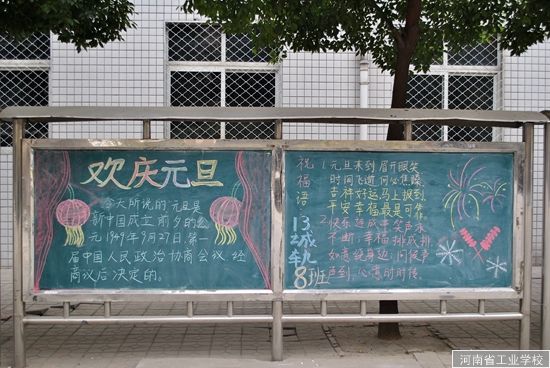 欢庆元旦
今天所说的元旦是
新中国成立前夕的公
元1949年9月27日,第一
届中国人民政治协商会议经
商议后决定的。
祝福语
1.元旦来到眉开眼笑
时间飞逝何必焦躁
吉祥好运马上报到
平安幸福最是可靠
2.快乐延成串笑声来
不断,幸福排成排
如意绕身边,问候声
声到,心意时时传。
13城轨
8班
河南省工业学校